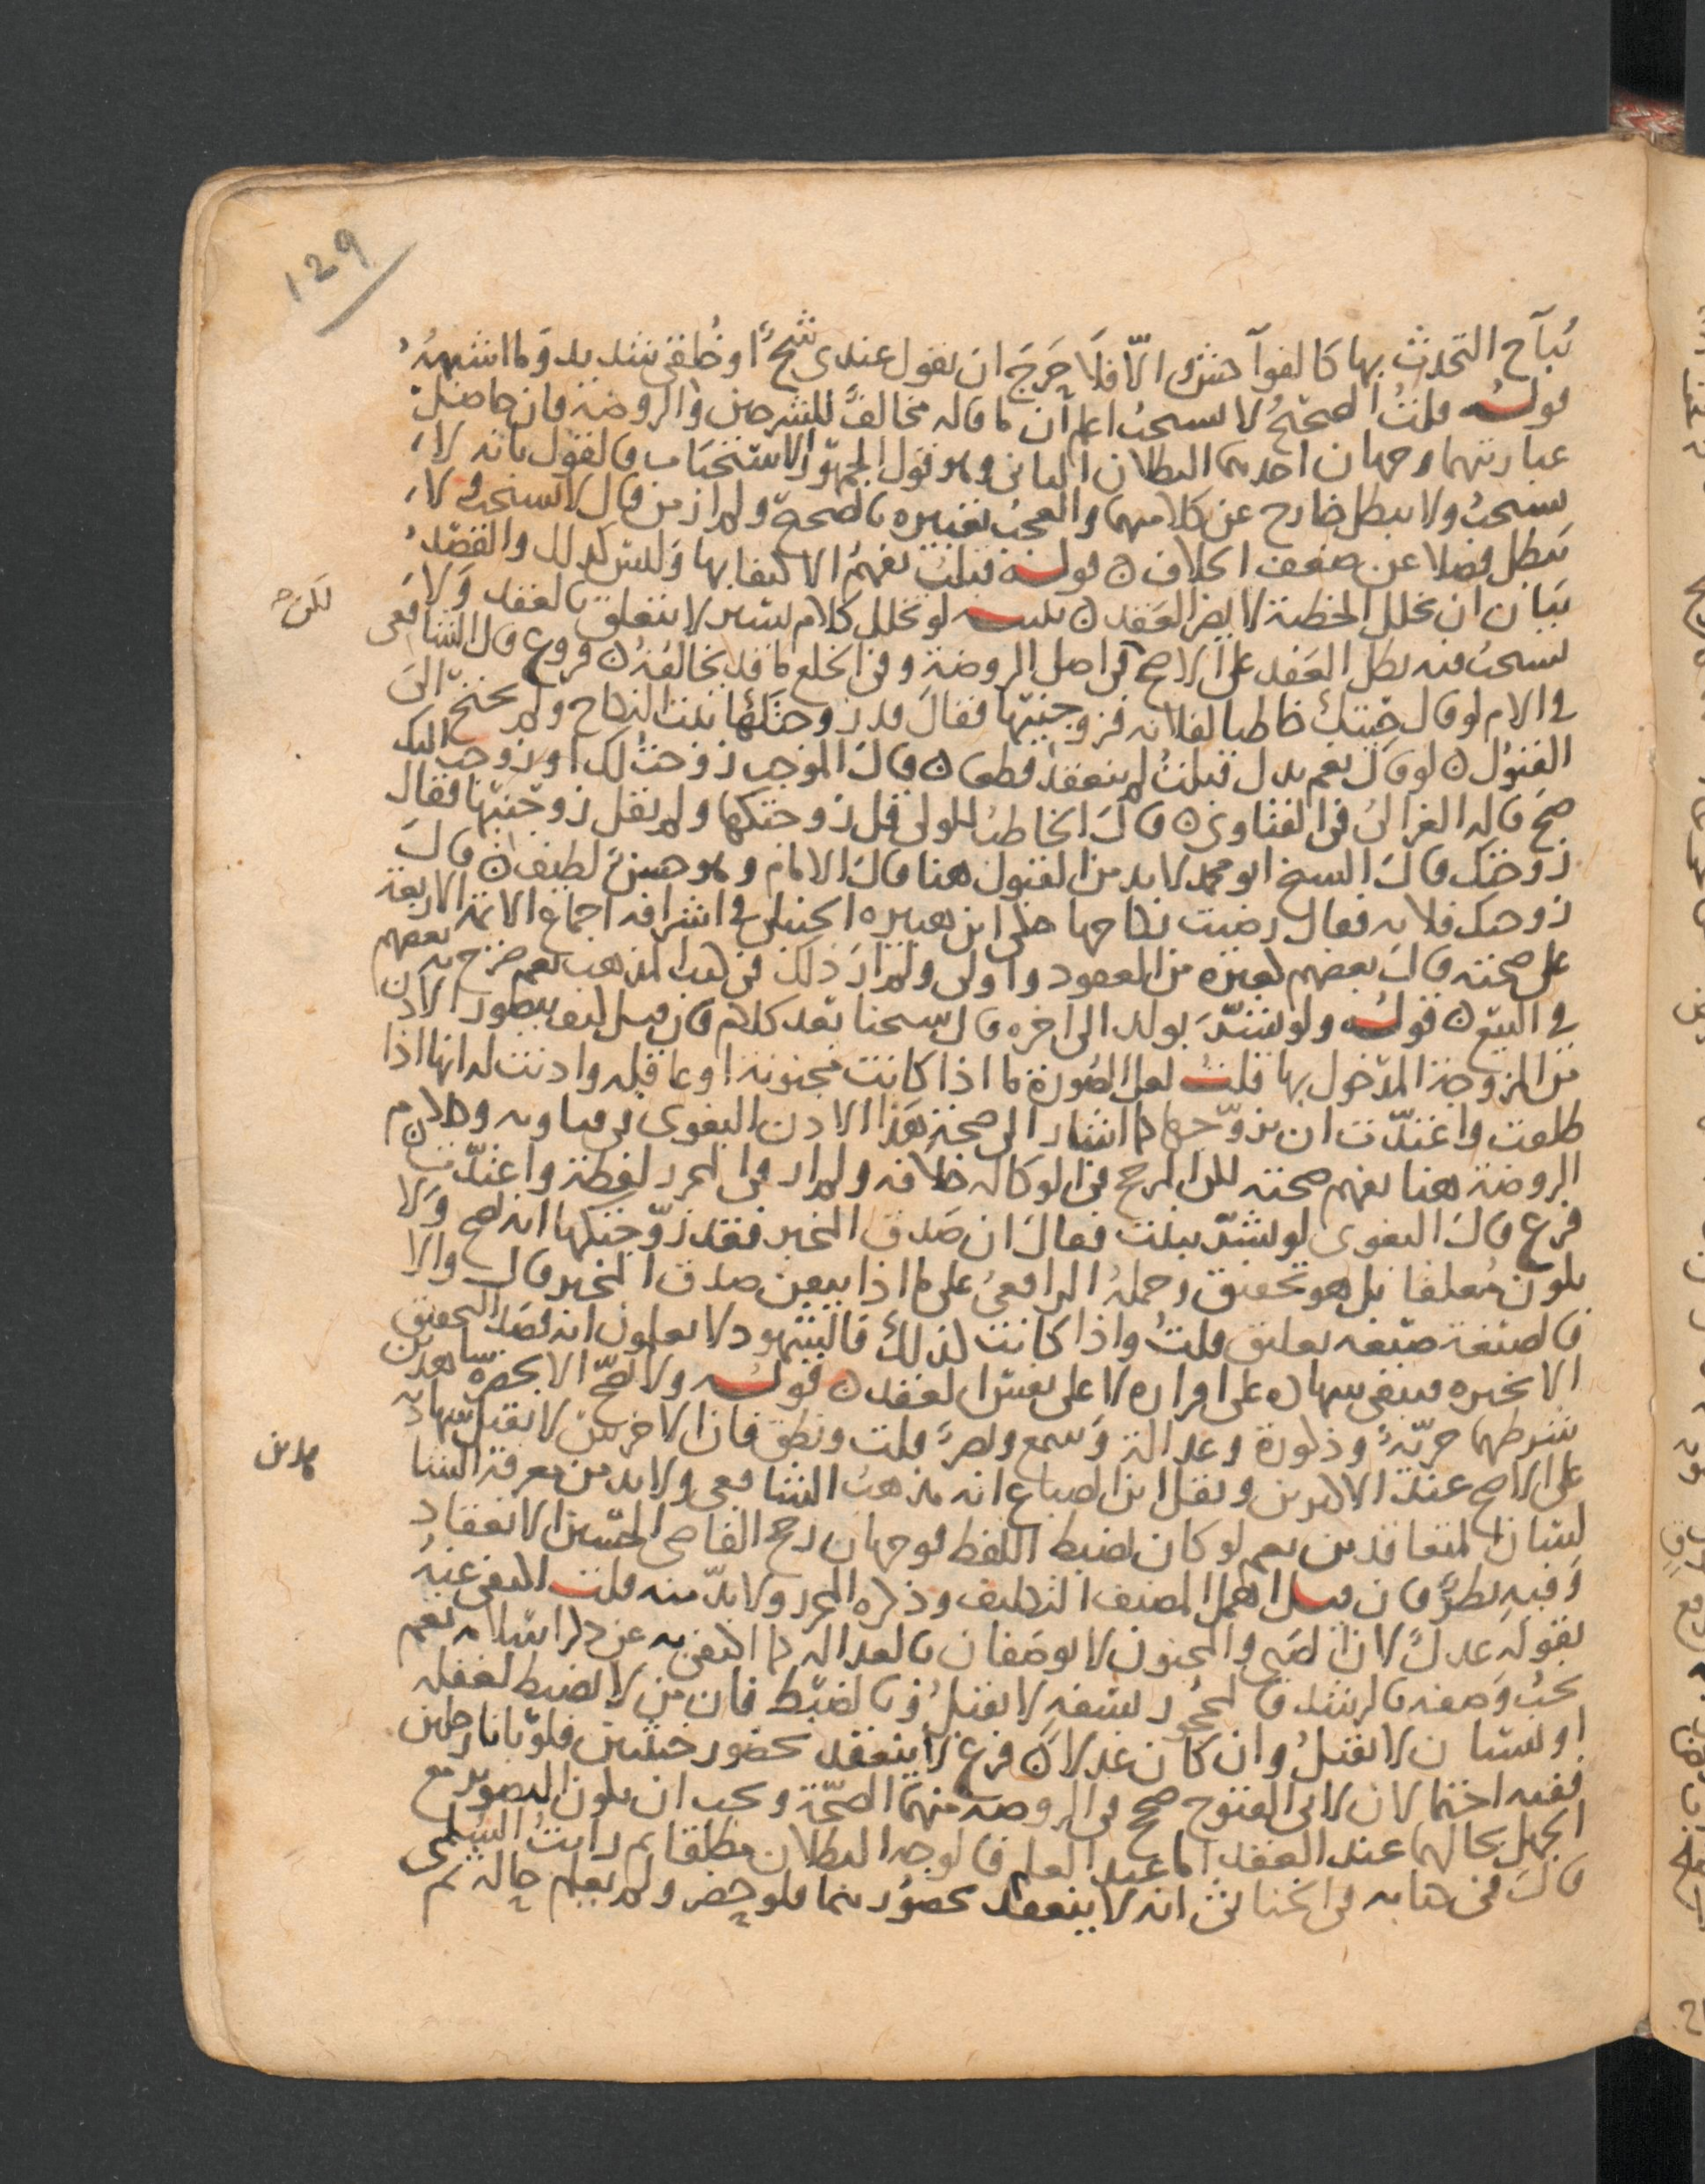 129
يُبآح التحدث بها كالفواحش والّا فلا حَرَجَ ان يقول عندى شُحٌّ او خُلقى شديد وما اشبهه
قولـه قلتُ الصحيحُ لا يستحبُ اعلم ان ما قاله مخالفٌ للشرحين والروضة فان حاصل
عبارتهما وجهان احدهما البطلان الثانى وهو قول الجمهور الاستحباب فالقول بانه لا
يستحبُ ولا يبطل خارج عن كلامهما والعجبُ تعبيره بالصحة ولم ار من قال لا يستحب ولا
يبطل فضلا عن ضعف الخلاف ۞ قولـه قبلتُ يفهمُ الاكتفا بها وليس كذلك والقصد
بيان ان تخلل الخطبة لا يضر العقد ۞ تنبيه لو تخلل كلام يسير لا يتعلق بالعقد ولا
لكن
يستحبُ فيه بطل العقد على الاصح فى اصل الروضة وفى الخلع ما قد يخالفه ۞ فروع قال الشافعى
فى الام لو قال جيتك خاطبا لفلانه فزوجنيها فقال قد زوجتكها ثبت النكاح ولم يحتج الى
القبول ۞ لو قال نعم بدل قبلتُ لم ينعقد قطعا ۞ قال الموجب زوجتُ لك او زوجت اليك
صح قاله الغزالى فى الفتاوى ۞ قال الخاطبُ للولى قل زوجتكها ولم يقل زوجنيها فقال
زوجتك قال الشيخ ابو محمد لا بد من القبول هنا قال الامام وهو حسن لطيف ۞ قال
زوجتك فلانه فقال رضيت نكاحها حكى ابن هبيره الحنبلى فى اشرافه اجماع الائمة الاربعة
على صحته قال بعضهم كغيره من العقود واولى ولم ار ذلك فى كتب المذهب نعم صرح به بعضهم
فى البيع ۞ قولـه ولو بُشّر بولد الى اخره قال شيخنا بعد كلام فان قيل كيف يتصور الاذن
من المزوجة المدخول بها قلت لعل الصورة ما اذا كانت مجنونة او عاقله واذنت له انها اذا
طلقت واعتدّت ان يزوّجها كما اشار الى صحة هذا الاذن البغوى فى فتاويه وكلام
الروضة هنا يفهم صحته لكن المرجح فى الوكاله خلافه ولم ار فى المحرر لفظة واعتدّت ۞
فرع قال البغوى لو بُشّر ببنت فقال ان صدق المخبر فقد زوّجتكها انه يصح ولا
يكون تعليقا بل هو تحقيق وحملهُ الرافعىُ على ما اذا تيقن صدق المخبر قال والا
فالصيغة صيغه تعليق قلتُ واذا كانت كذلك فالشهود لا يعلمون انه قصد التحقيق
الا بخبره فتبقى شهاده على اقراره لا على نفس العقد ۞ قولـه ولا يصحّ الا بحضرة شاهدين
شرطهما حريّة وذكورة وعدالة وسمع وبصرٌ قلت ونطق فان الاخرس لا تقبل شهادته
على الاصح عند الاكثرين ونقل ابن الصباغ انه مذهبُ الشافعى ولا بد من معرفة الشا
هدين
لسان المتعاقدين نعم لو كان يضبط اللفظ فوجهان رجح القاضى الحسين الانعقاد
وفيه نظرٌ فان قيل اهمل المصنف التكليف وذكره المحرر ولا بدّ منه قلت اكتفى عنه
بقوله عدلٌ لان الصبى والمجنون لا يوصفان بالعداله كما اكتفى به عن ذكر اسلامه نعم
يجبُ وصفه بالرشد فالمحجور بسفهٍ لا يقبلُ وبالضبط فان من لا يضبط لغفله
او نسيان لا يقبلُ وان كان عدلا ۞ فرع لا ينعقد بحضور خنثيين فلو بانا رجلين
ففيه احتمالان لابى الفتوح صحح فى الروضه منهما الصحّة ويجب ان يكون التصوير مع
الجهل بحالهما عند العقد اما عند العلم فالوجه البطلان مطلقا ثم رايتُ السُلمى
قال فى كتابه فى الخناثى انه لا ينعقد بحضورهما فلو حضر ولم يعلم حاله ثم